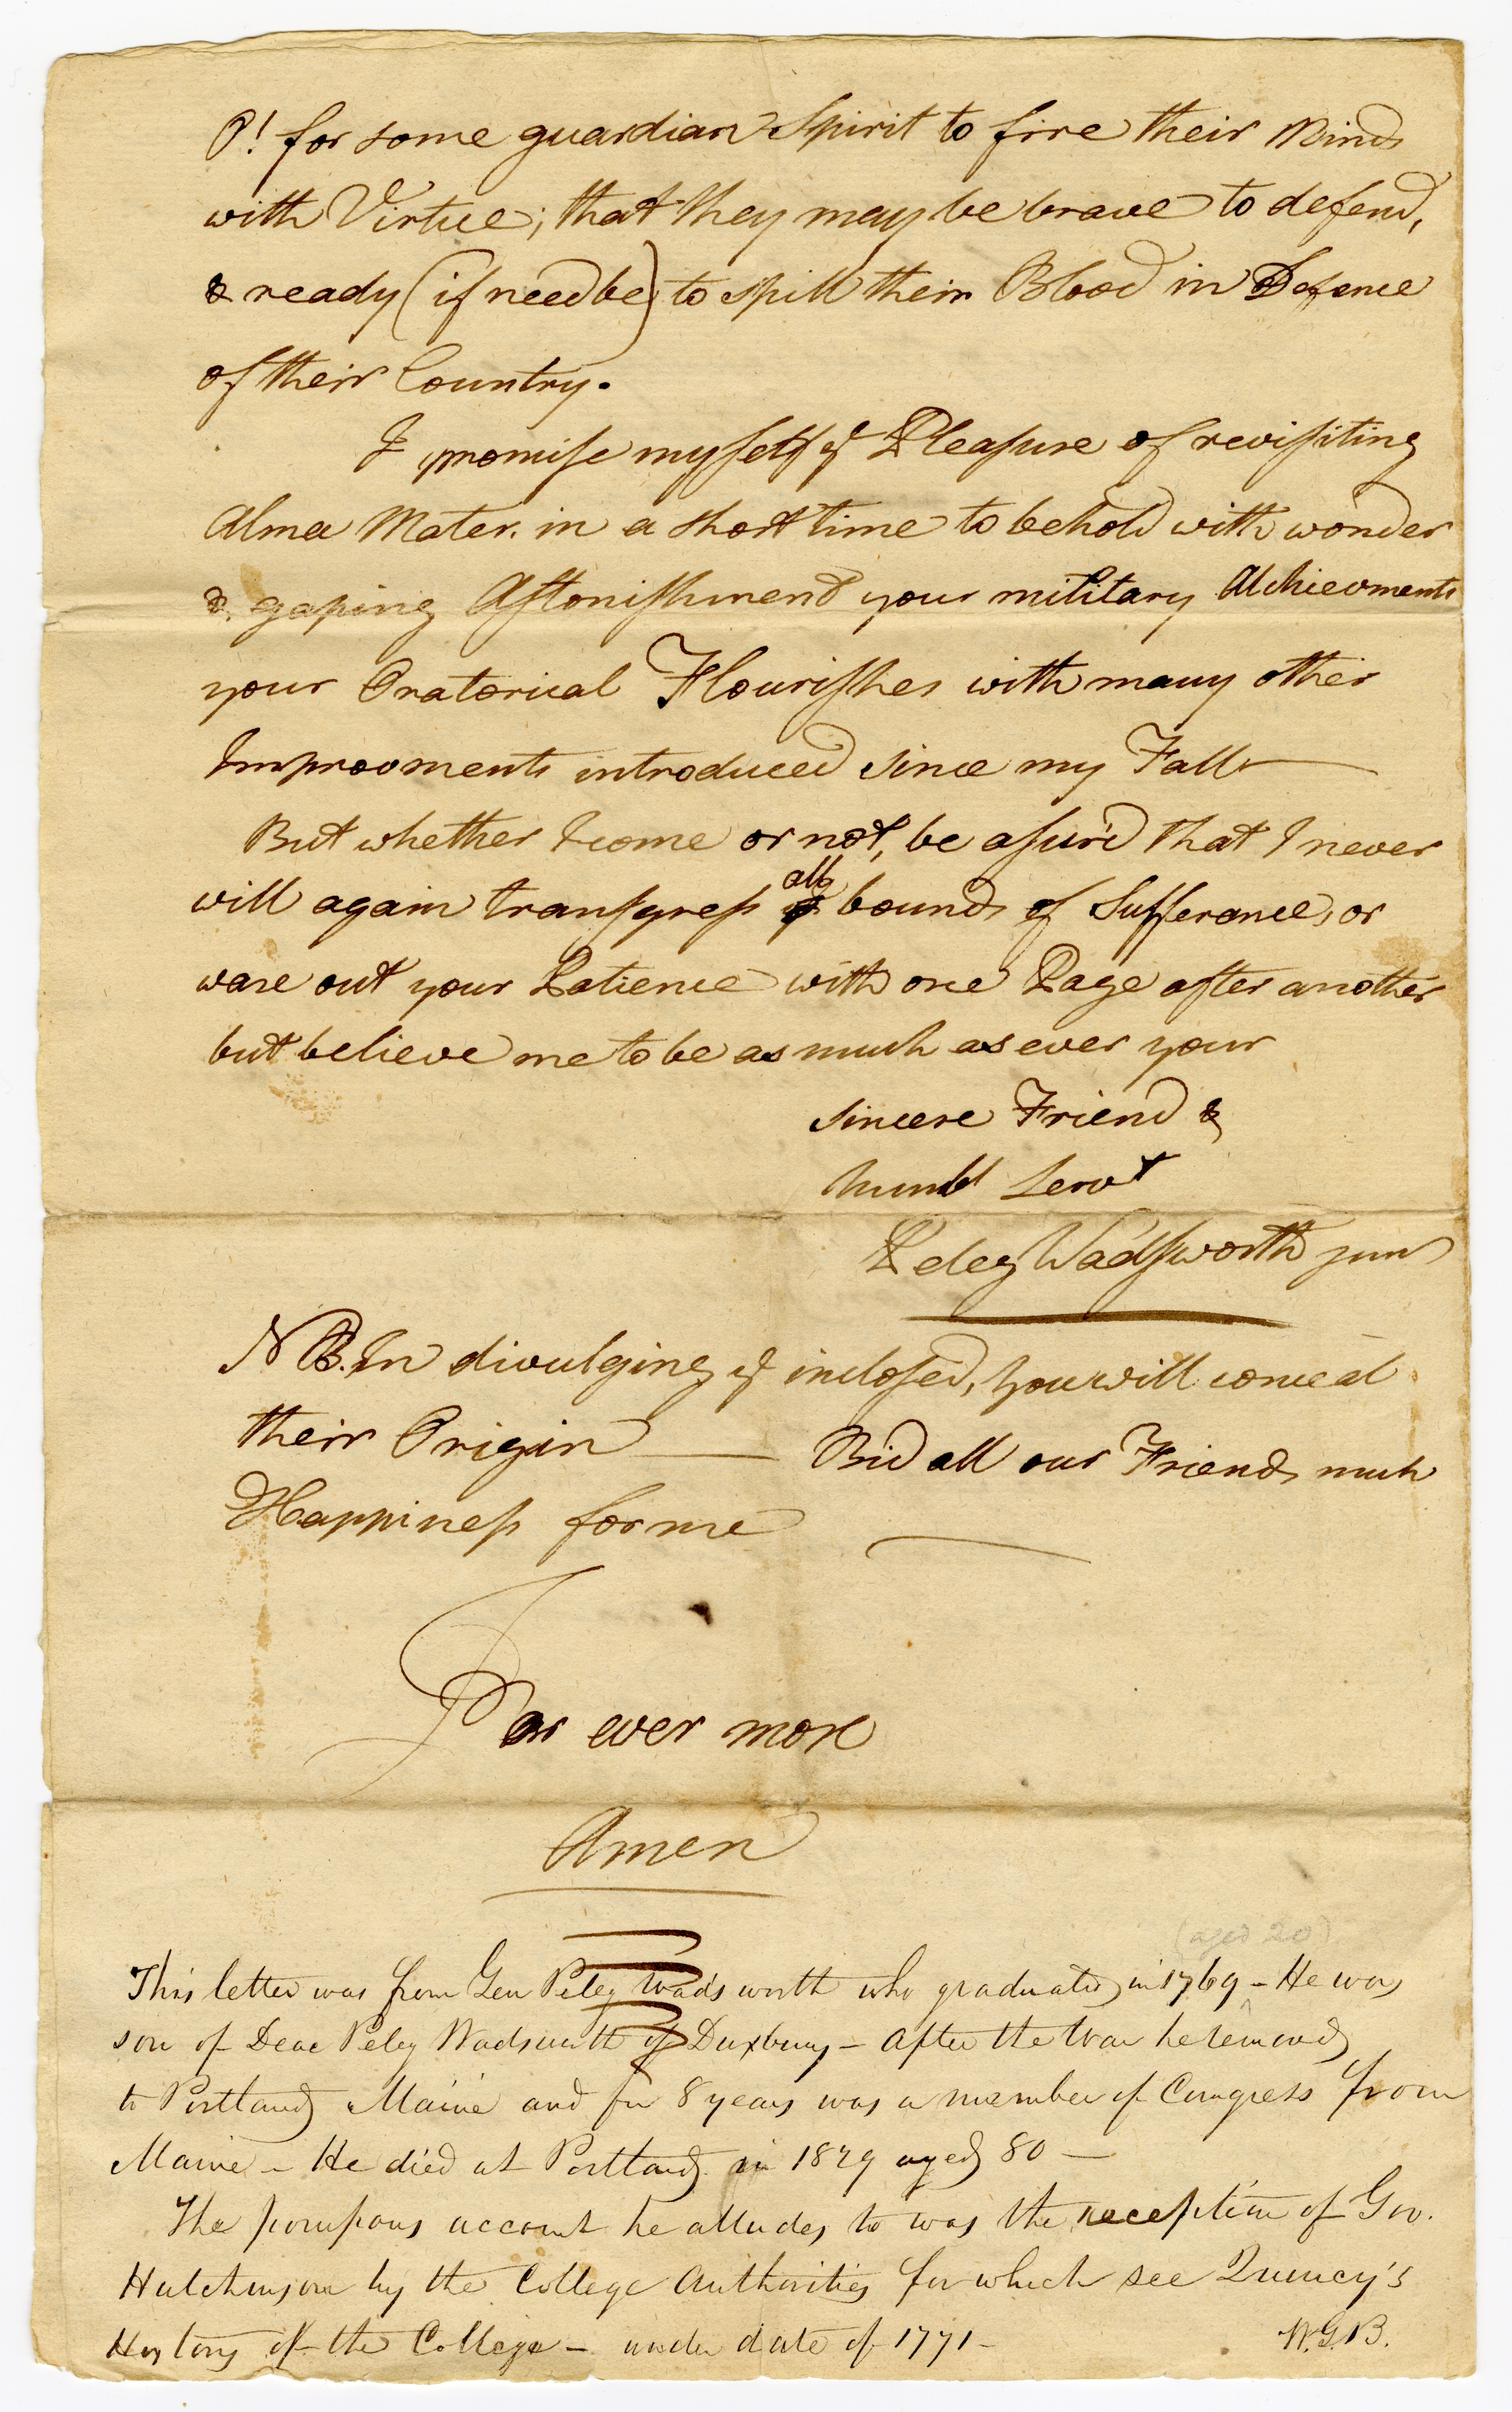 O! for some guardian Spirit to fire their Minds
with Virtue; that they may be brave to defend,
& ready (if need be) to spill their Blood in Defence
of their Country.
I promise myself ye Pleasure of revisiting
Alma Mater. in a short time to behold with wonder
& gaping Astonishment your military Atchievments
your Oratorical Flourishes with many other
Improovments introduced since my Fall
But whether I come or not, be assur'd that I never
will again transgress all bounds of Sufferance, or
ware out your Patience with one Page after another
but believe me to be as much as ever your
sincere Friend &
humbl Servt
Peleg Wadsworth junr
NB. In divulging ye inclosed, you will conceal
their Origin — Bid all our Friends much
Happiness for me
For ever more
Amen
(aged 20)
This letter was from Gen Peleg Wadsworth who graduated in 1769 - He was
son of Deac Peleg Wadsworth of Duxbury - After the War he removed
to Portland Maine and for 8 years was a member of Congress from
Maine - He died at Portland in 1829 aged 80 —
The pompous account he alludes to was the reception of Gov.
Hutchinson by the College Authorities for which see Quincy's
History of the College - under date of 1771 -
W.G.B.